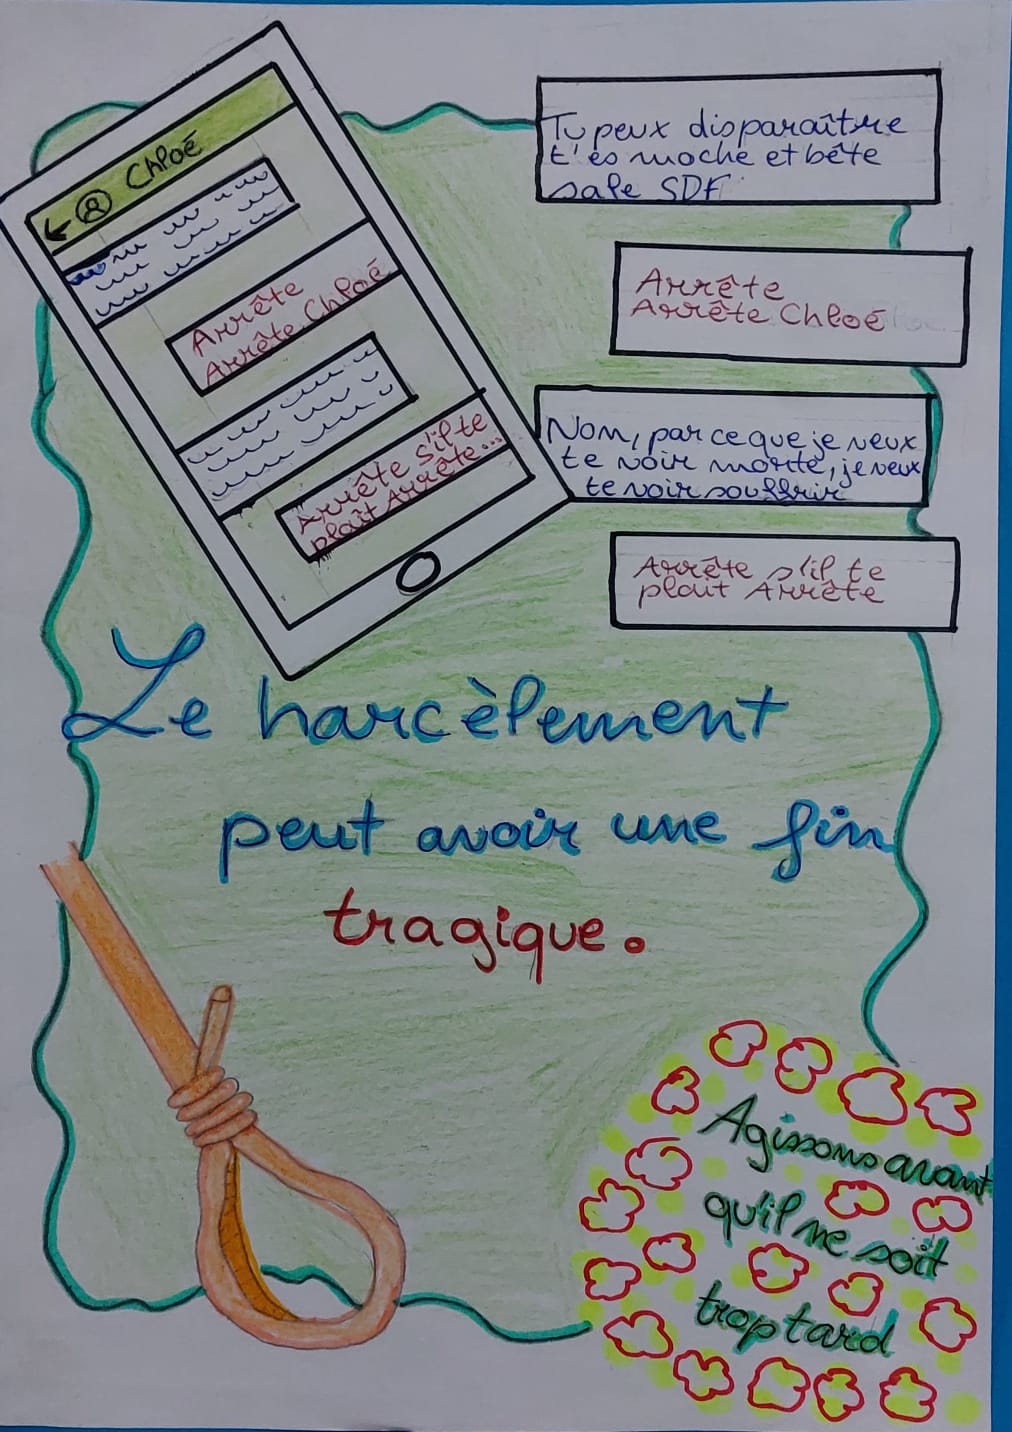 Chloé
Arrête
Arrête Chloé
Arrête s'il te
plaît Arrête...
Tu peux disparaître
t'es moche et bête
sale SDF
Arrête
Arrête Chloé
Non, parce que je veux
te voir morte, je veux
te voir souffrir
Arrête s'il te
plaît Arrête
Le harcèlement
peut avoir une fin
tragique.
Agissons avant
qu'il ne soit
trop tard